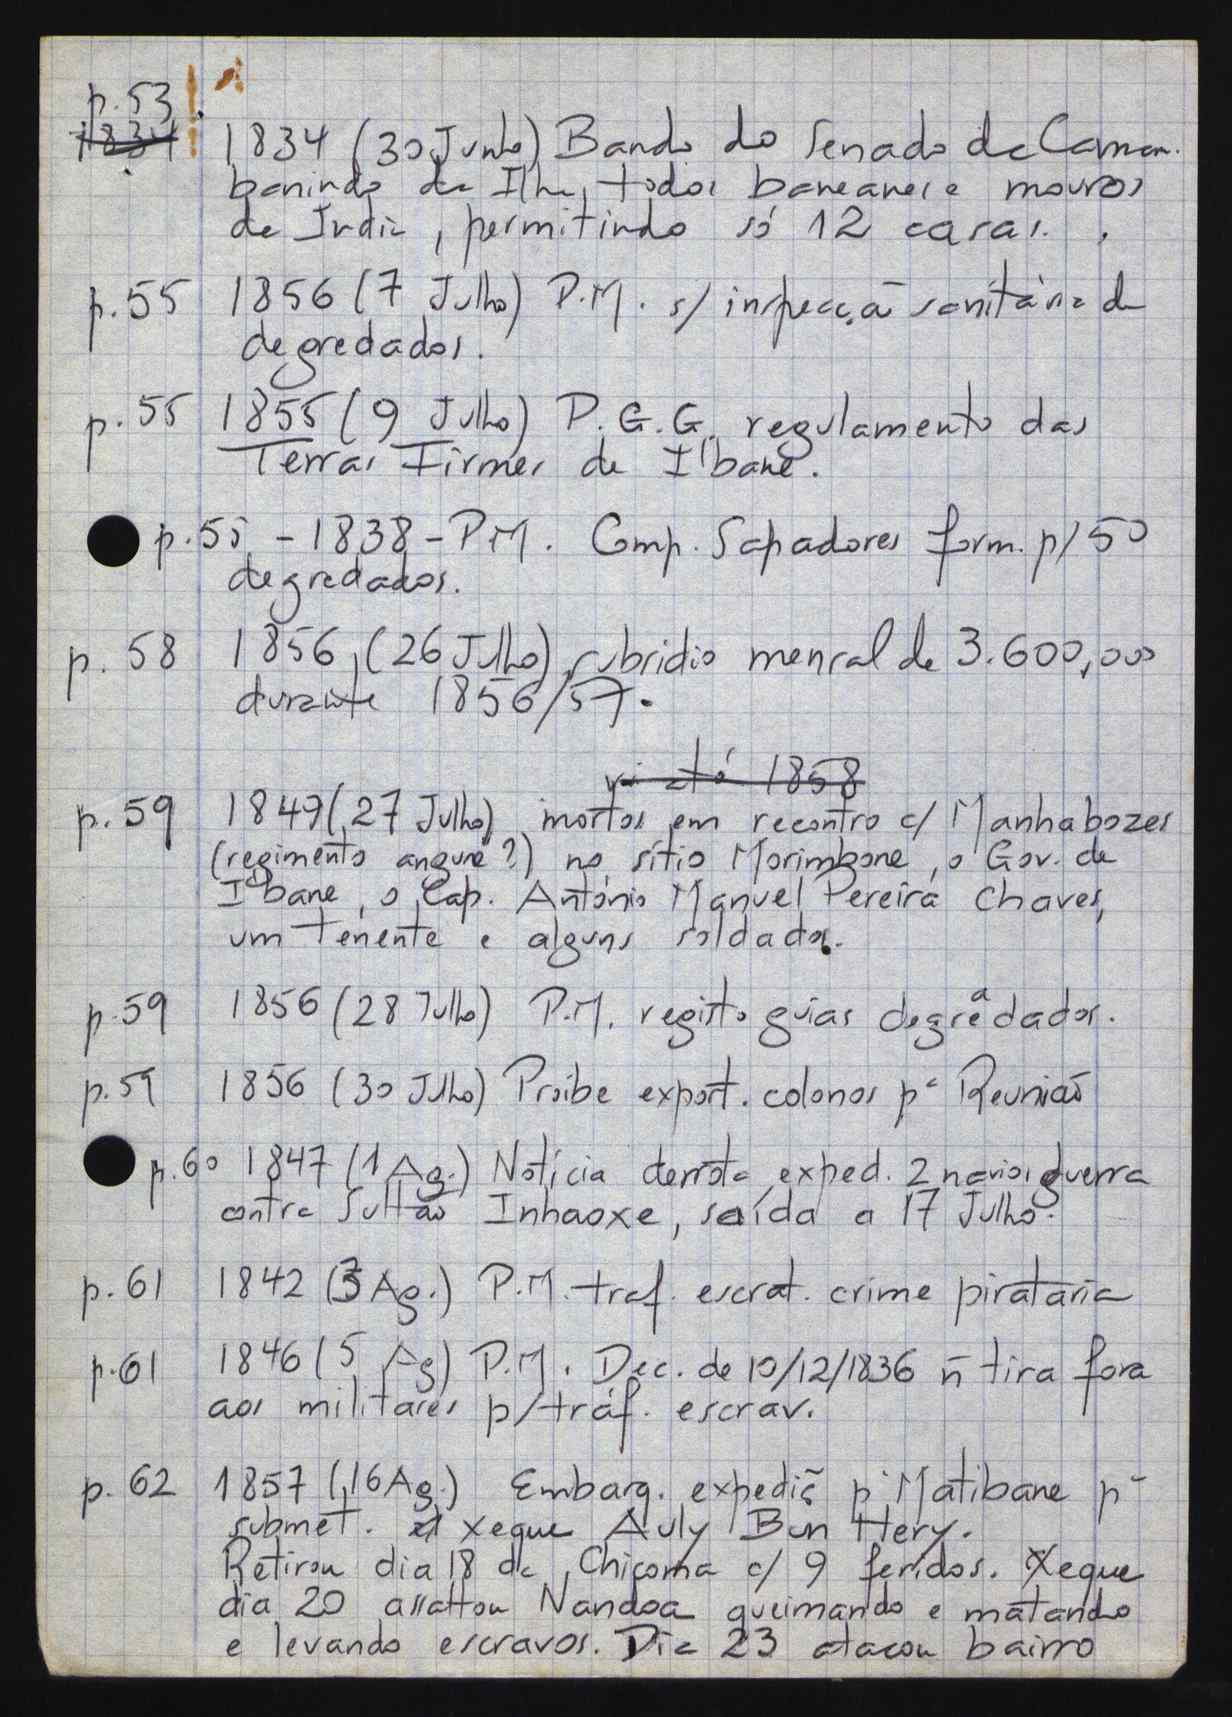 p.53
1834 1834 (30 Junho) Bando do Senado da Camar.
banindo da Ilha, todos baneanes e mouros
de India, permitindo só 12 casas.
p.55 1856 (7 Julho) P.M. s/ inspecçã sanitária de
degredados.
p.55 1855 (9 Julho) P.G.G. regulamento das
Terras Firmes de I'bane.
p.55 - 1838 - P.M. Comp. Sapadores form. p/ 50
degredados.
p. 58 1856 (26 Julho) subsidio mensal de 3.600,000
durante 1856/57.
até 1858
p.59 1849 (27 Julho) mortos em recontro c/ Manhabozes
(regimento angune?) no sítio Morimbone, o Gov. de
I'bane, o Cap. António Manuel Pereira Chaves,
um tenente e alguns soldados.
p.59 1856 (28 Julho) P.M. registo guias degredados.
p.59 1856 (30 Julho) Proibe export. colonos pª Reunião
p.60 1847 (1 Ag.) Notícia derrota exped. 2 navios guerra
contra Sultão Inhaoxe, saída a 17 Julho.
p.61 1842 (3 Ag.) P.M. traf. escrat. crime pirataria
p.61 1846 (5 Ag) P.M. Dec. de 10/12/1836 ñ tira fora
aos militares p/ tráf. escrav.
p.62 1857 (16 Ag.) Embarq. expediç̃ pª Matibane pª
submet. xeque Auly Bun Hery.
Retirou dia 18 de Chicoma c/ 9 feridos. Xeque
dia 20 assaltou Nandoa queimando e matando
e levando escravos. Dia 23 atacou bairro